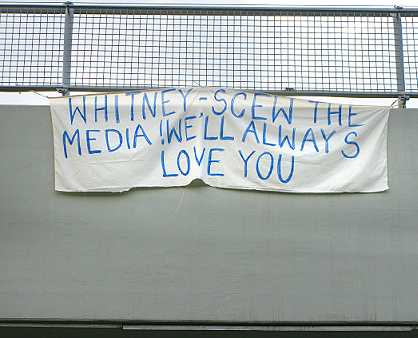 WHITNEY-SCEW THE
MEDIA! WE'LL ALWAYS
LOVE YOU